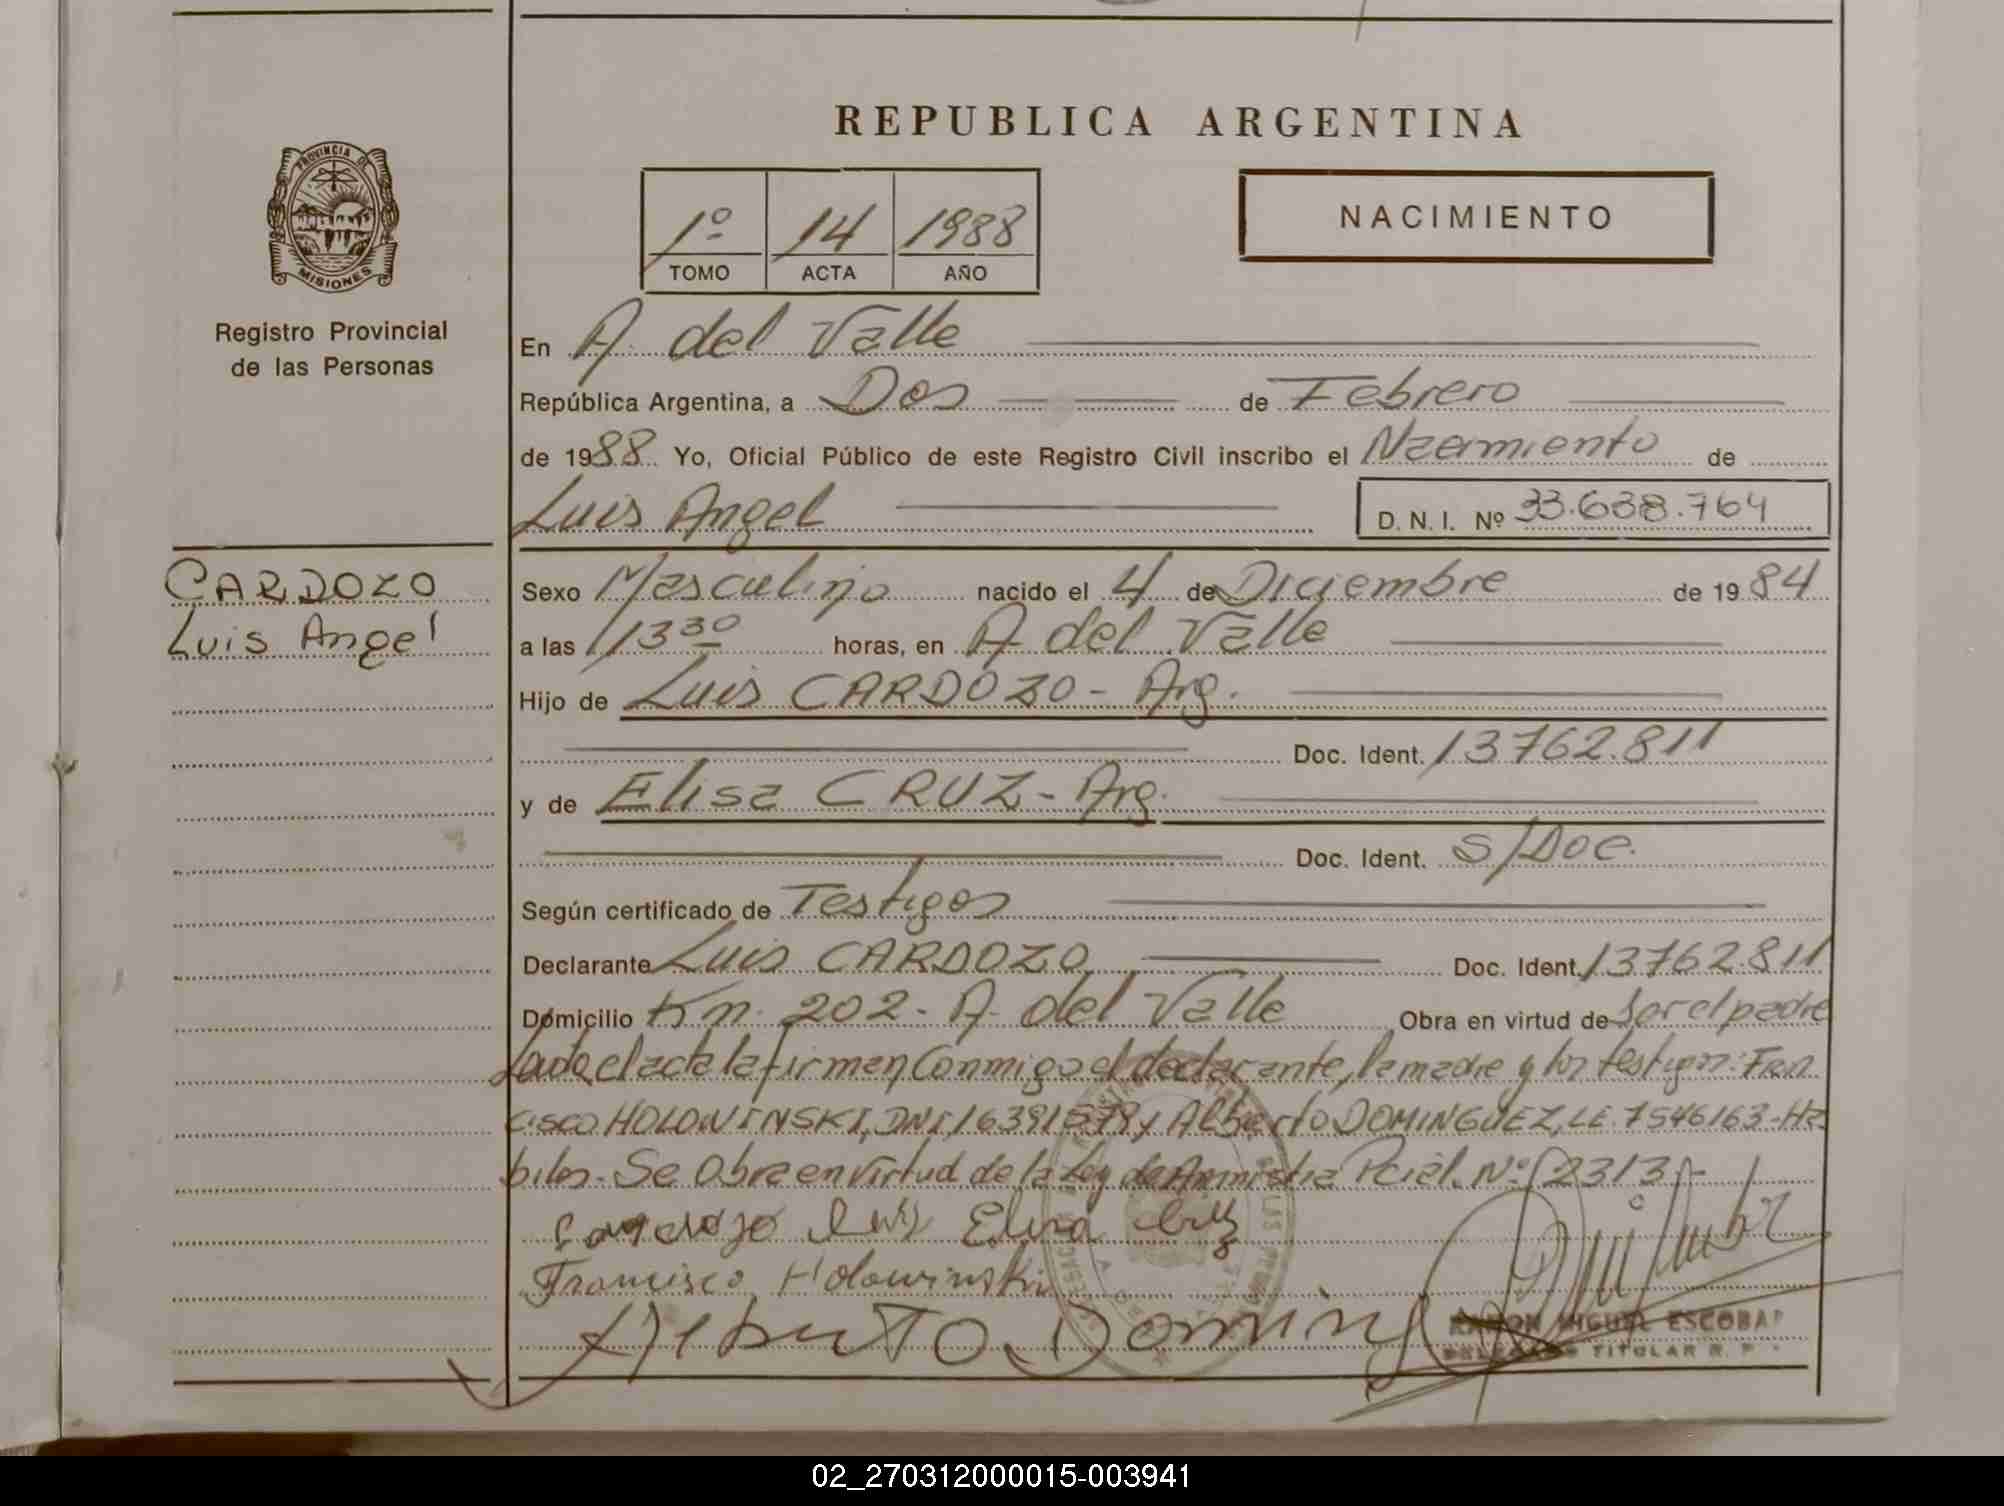 REPUBLICA ARGENTINA
PROVINCIA DE
MISIONES
Registro Provincial
de las Personas
1º 14 1988
TOMO ACTA AÑO
NACIMIENTO
En A. del Valle
República Argentina, a Dos de Febrero
de 1988 Yo, Oficial Público de este Registro Civil inscribo el Nacimiento de
Luis Angel D. N. I. Nº 33.638.764
CARDOZO
Luis Angel
Sexo Masculino nacido el 4 de Diciembre de 1984
a las 13 30 horas, en A. del Valle
Hijo de Luis CARDOZO - Arg.
Doc. Ident. 13762.811
y de Elisa CRUZ - Arg.
Doc. Ident. S/Doc.
Según certificado de Testigos
Declarante Luis CARDOZO Doc. Ident. 13762.811
Domicilio Km. 202 - A. del Valle Obra en virtud de Ser el padre
el acta la firman Conmigo el declarante, la madre y los testigos: Fran
cisco HOLOWINSKI, DNI, y Alberto DOMINGUEZ, LE. 7546163 - Ha
biles - Se Obra en virtud de la Ley de Amnistia Pcial. Nº 2313 -
Luis
Francisco Holowinski
Alberto Doming
RAMON MIGUEL ESCOBAR
DELEGADO TITULAR R. P.
02_270312000015-003941